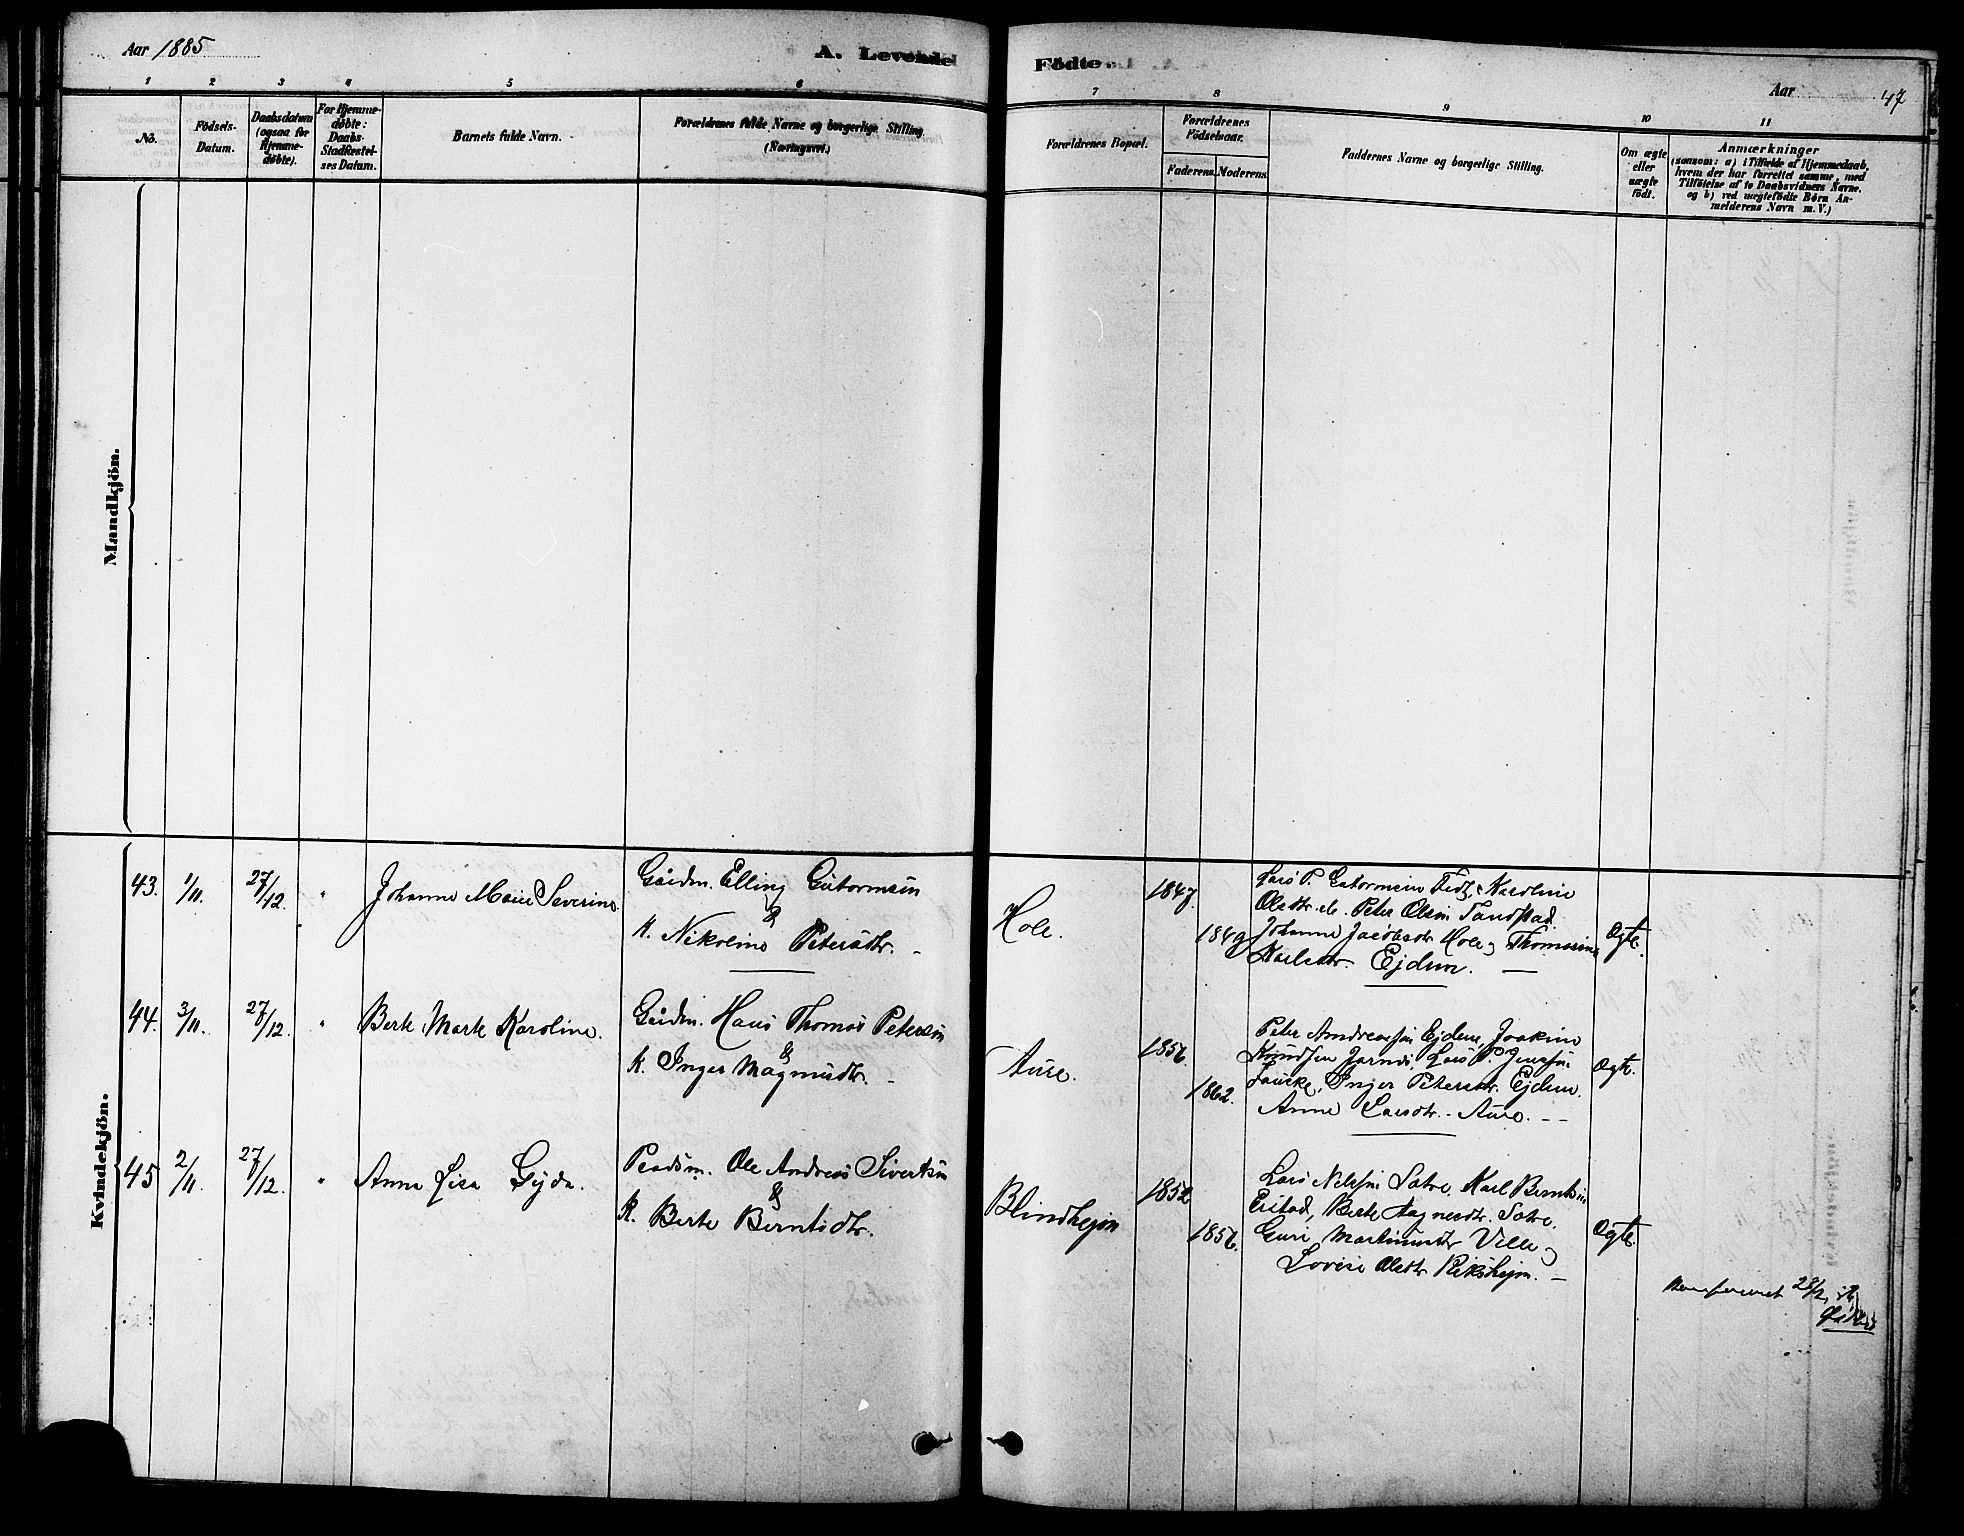 Aar 1885
A. Levende
Födte.
Aar
47
1 2 3 4 5 6
7 8 9 10 11
No.
Födsels-
Datum.
Daabsdatum
(ogsaa for
Hjemme-
döbte).
For Hjemme-
döbte:
Daabs-
Stadfæstel-
ses Datum.
Barnets fulde Navn.
Forældrenes fulde Navne og borgerlige Stilling.
(Næringsvei.)
Forældrenes Bopæl.
Forældrenes
Födselsaar.
Faderens. Moderens.
Faddernes Navne og borgerlige Stilling.
Om ægte
eller
uægte
födt.
Anmærkninger
(saasom: a) i Tilfælde af Hjemmedaab,
hvem der har forrettet samme, med
Tilföielse af to Daabsvidners Navne.
og b) ved uægtefödte Börn An-
melderens Navn m. V.)
Mandkjön.
Kvindekjön.
43. 1/11. 27/12. " Johanne Marie Severine.
Gaardm. Elling Gutormsen
&
K. Nikoline Petersdtr. -
Hole.
1847.
1849
Lars P. Gutormsen Karoline
Olsdtr. Peter Olsen Tandstad.
Johanne Jacobsdtr Hole, Thomasine
Karlsdtr. Ejdem. -
Ægte.
44. 3/11. 27/12. " Berte Marte Karoline.
Gaardm. Hans Thomas Petersen
&
K. Inger Magnusdtr. -
Aure.
1856.
1862.
Peter Andreassen Ejdem, Joakim
Knudsen Lars P. Jenssen
Inger Petersdtr. Ejdem.
Anne Larsdtr. Aure. --
Ægte.
45 2/11. 27/12. " Anna Lisa Gyda.
Pladsm. Ole Andreas Sivertsen
&
K. Berte Berntsdtr.
Blindhejm
1852
1856.
Lars Nilssen Satre, Karl Berntsen
Eistad, Berte Satre.
Guri Martinusdtr Velle,
Lovise Olsdtr Rikshejm. -
Ægte.
28/2